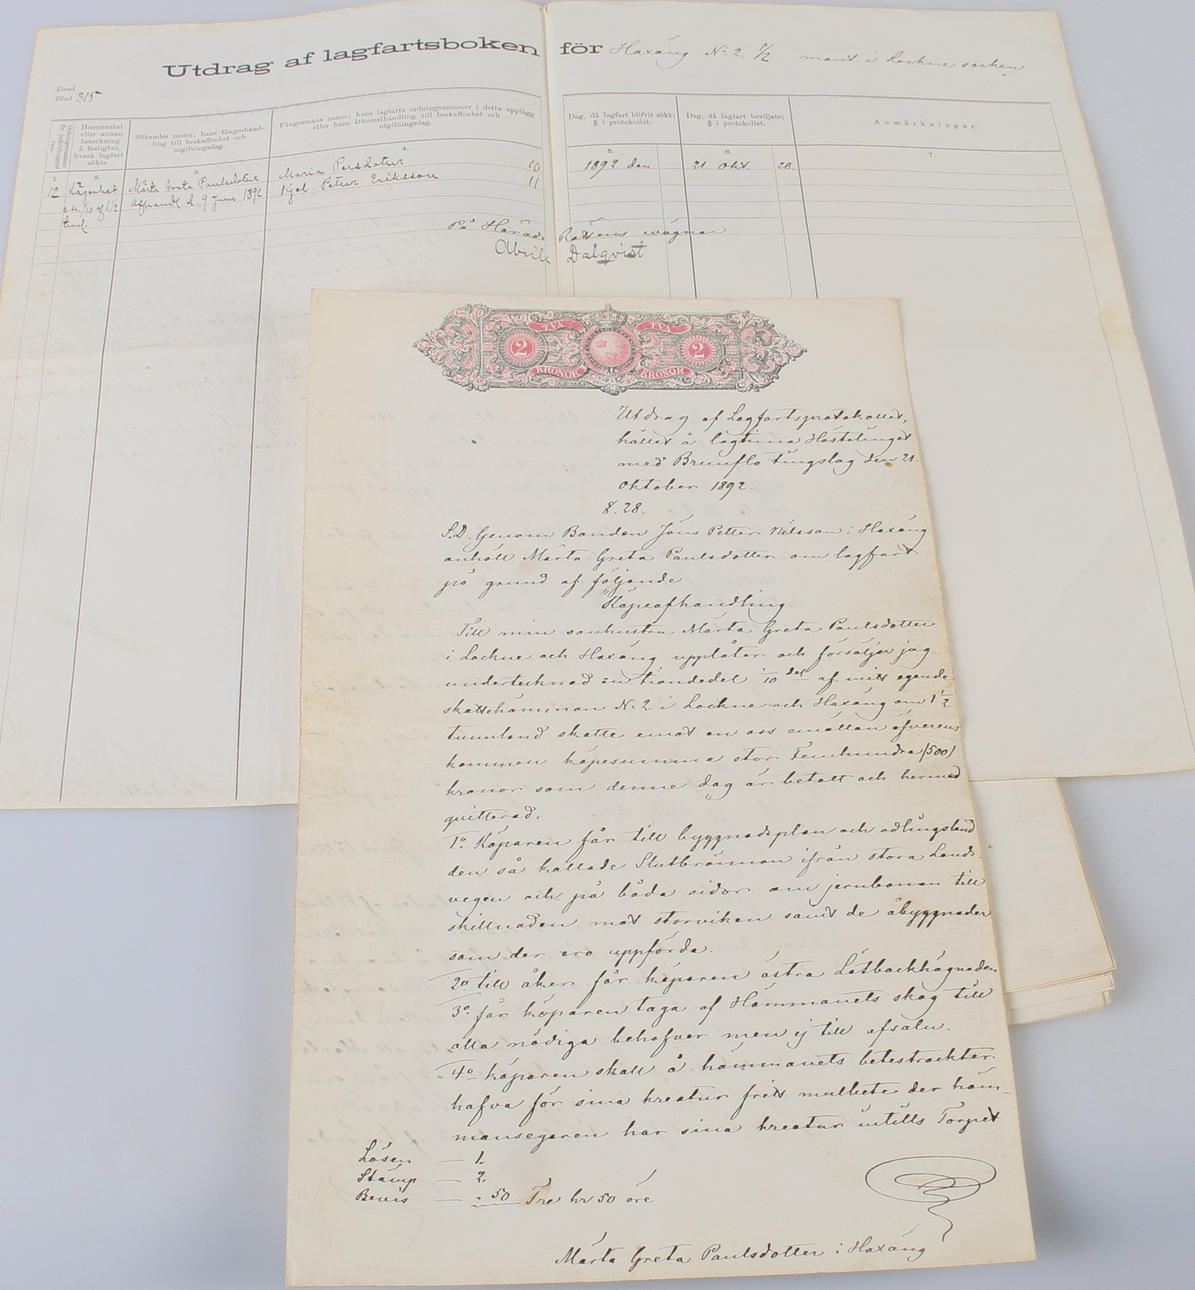 Utdrag af lagfartsboken för Haxäng N:2. 1/2 mant. i Lockne socken
Band
Blad 315
Hemmantal eller annan beteckning å fastighet, hvarå lagfart sökts.
Sökandes namn; hans fångeshandling till beskaffenhet och utgifningsdag.
Fångesmans namn; hans lagfarts ordningsnummer i detta upplägg eller hans åtkomsthandling till beskaffenhet och utgifningsdag.
Dag, då lagfart blifvit sökt; § i protokollet.
Dag, då lagfart beviljats; § i protokollet.
Anmärkningar.
1. 2. 3. 4. 5. 6. 7.
12 Lägenhet Märta Greta Paulsdotter Maria Persdotter 10 1892 den 21 Okt. 28.
af 1 1/2 Afhandl. d. 9 Juni 1892 Gust. Petter Eriksson 11
tunl.
På Härads Rättens wägnar
Dalqvist
TVÅ TVÅ
2 2
KRONOR KRONOR
Utdrag af Lagfartsprotokollet,
hållet å lagtima Hösteting
med Brunflo tingslag den 21.
Oktober 1892.
§. 28.
S.D. Genom Bonden Jöns Petter Nilsson i Haxäng
anhöll Märta Greta Paulsdotter om lagfart
på grund af följande
Köpeafhandling
Till min sonhustru Märta Greta Paulsdotter
i Lockne och Haxäng upplåter och försäljer jag
undertecknad en tiondedel 1/10 del af mitt egande
skattehemman N:2 i Lockne och Haxäng om 1 1/2
tunnland skatte emot en oss emällan öfverens
kommen köpesumma stor Femhundra (500)
kronor som denne dag är betalt och hermed
quitterad.
1o Köparen får till byggnadsplan och odlingsland
den så kallade Slutbrännan ifrån stora Lands
vegen och på båda sidor om jernbanan till
skillnaden mot storviken samt de åbyggnader
som der ero uppförda.
2o till åker får köparen östra
3o får köparen taga af Hemmanets skog till
alla nödiga behofver men ej till afsalu.
4o köparen skall å hemmanets betestrackter
hafva för sina kreatur fritt mulbete der hem-
mansegaren har sina kreatur intills Torpet
Lösen — 1.
Stämp — 2.
Bevis — „ 50 Tre kr 50 öre
Märta Greta Paulsdotter i Haxäng